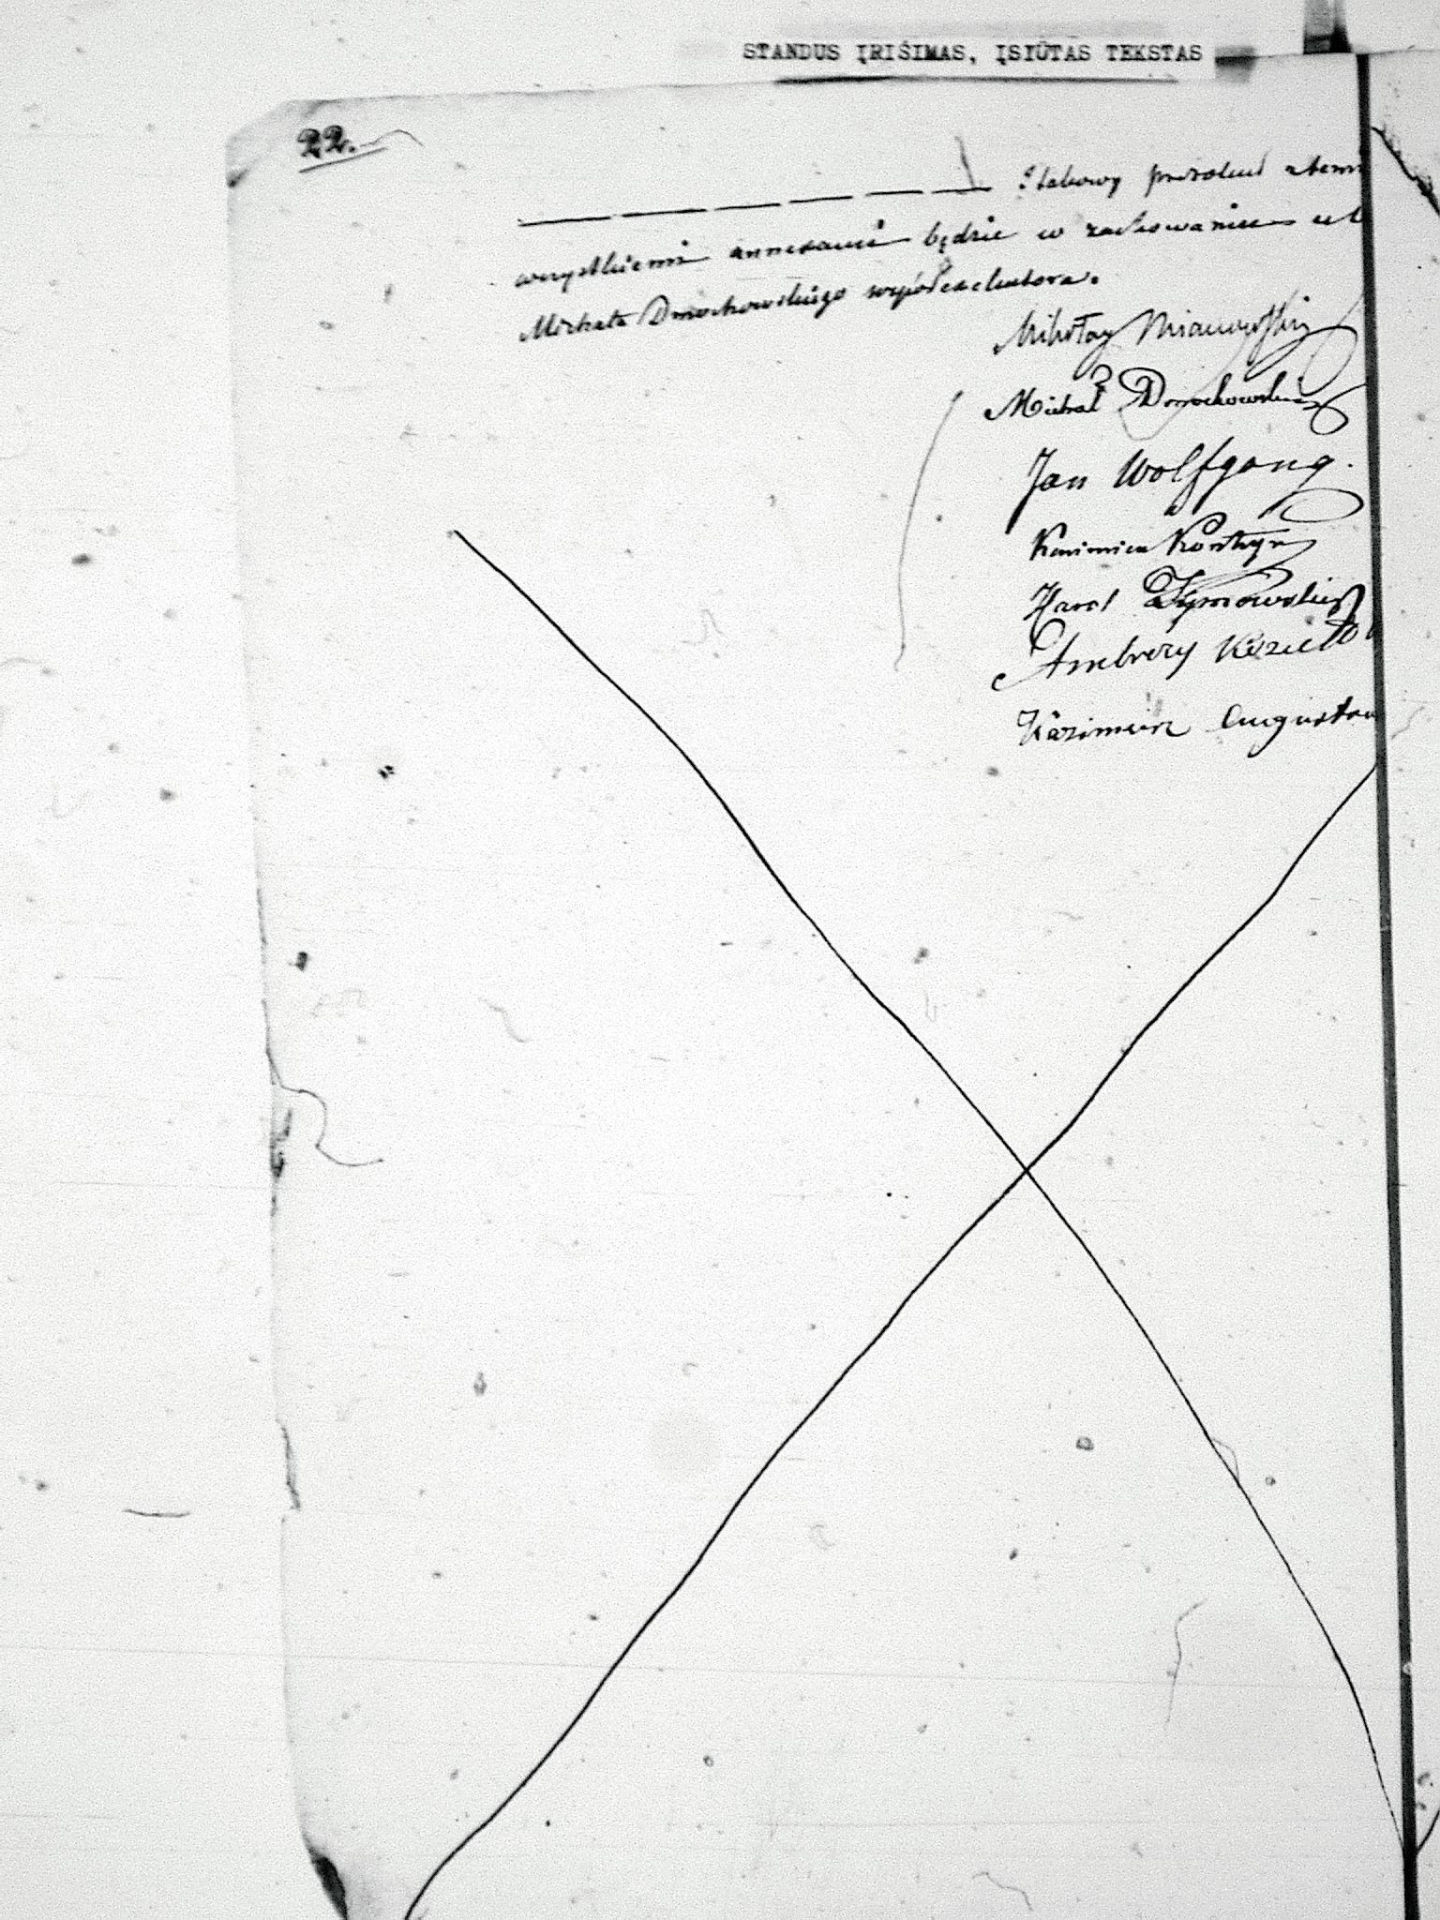 STANDUS ĮRIŠIMAS, ĮSIŪTAS TEKSTAS
22.
wszystkiemi annexami będzie w zachowaniu u
Michała Dmochowskiego współexekutora.
Mikołay Mianowski
Michał Dmochowski
Jan Wolfgang.
Kazimierz Kontrym
Karol Żymowski
Ambrozy
Kazimierz Augustow